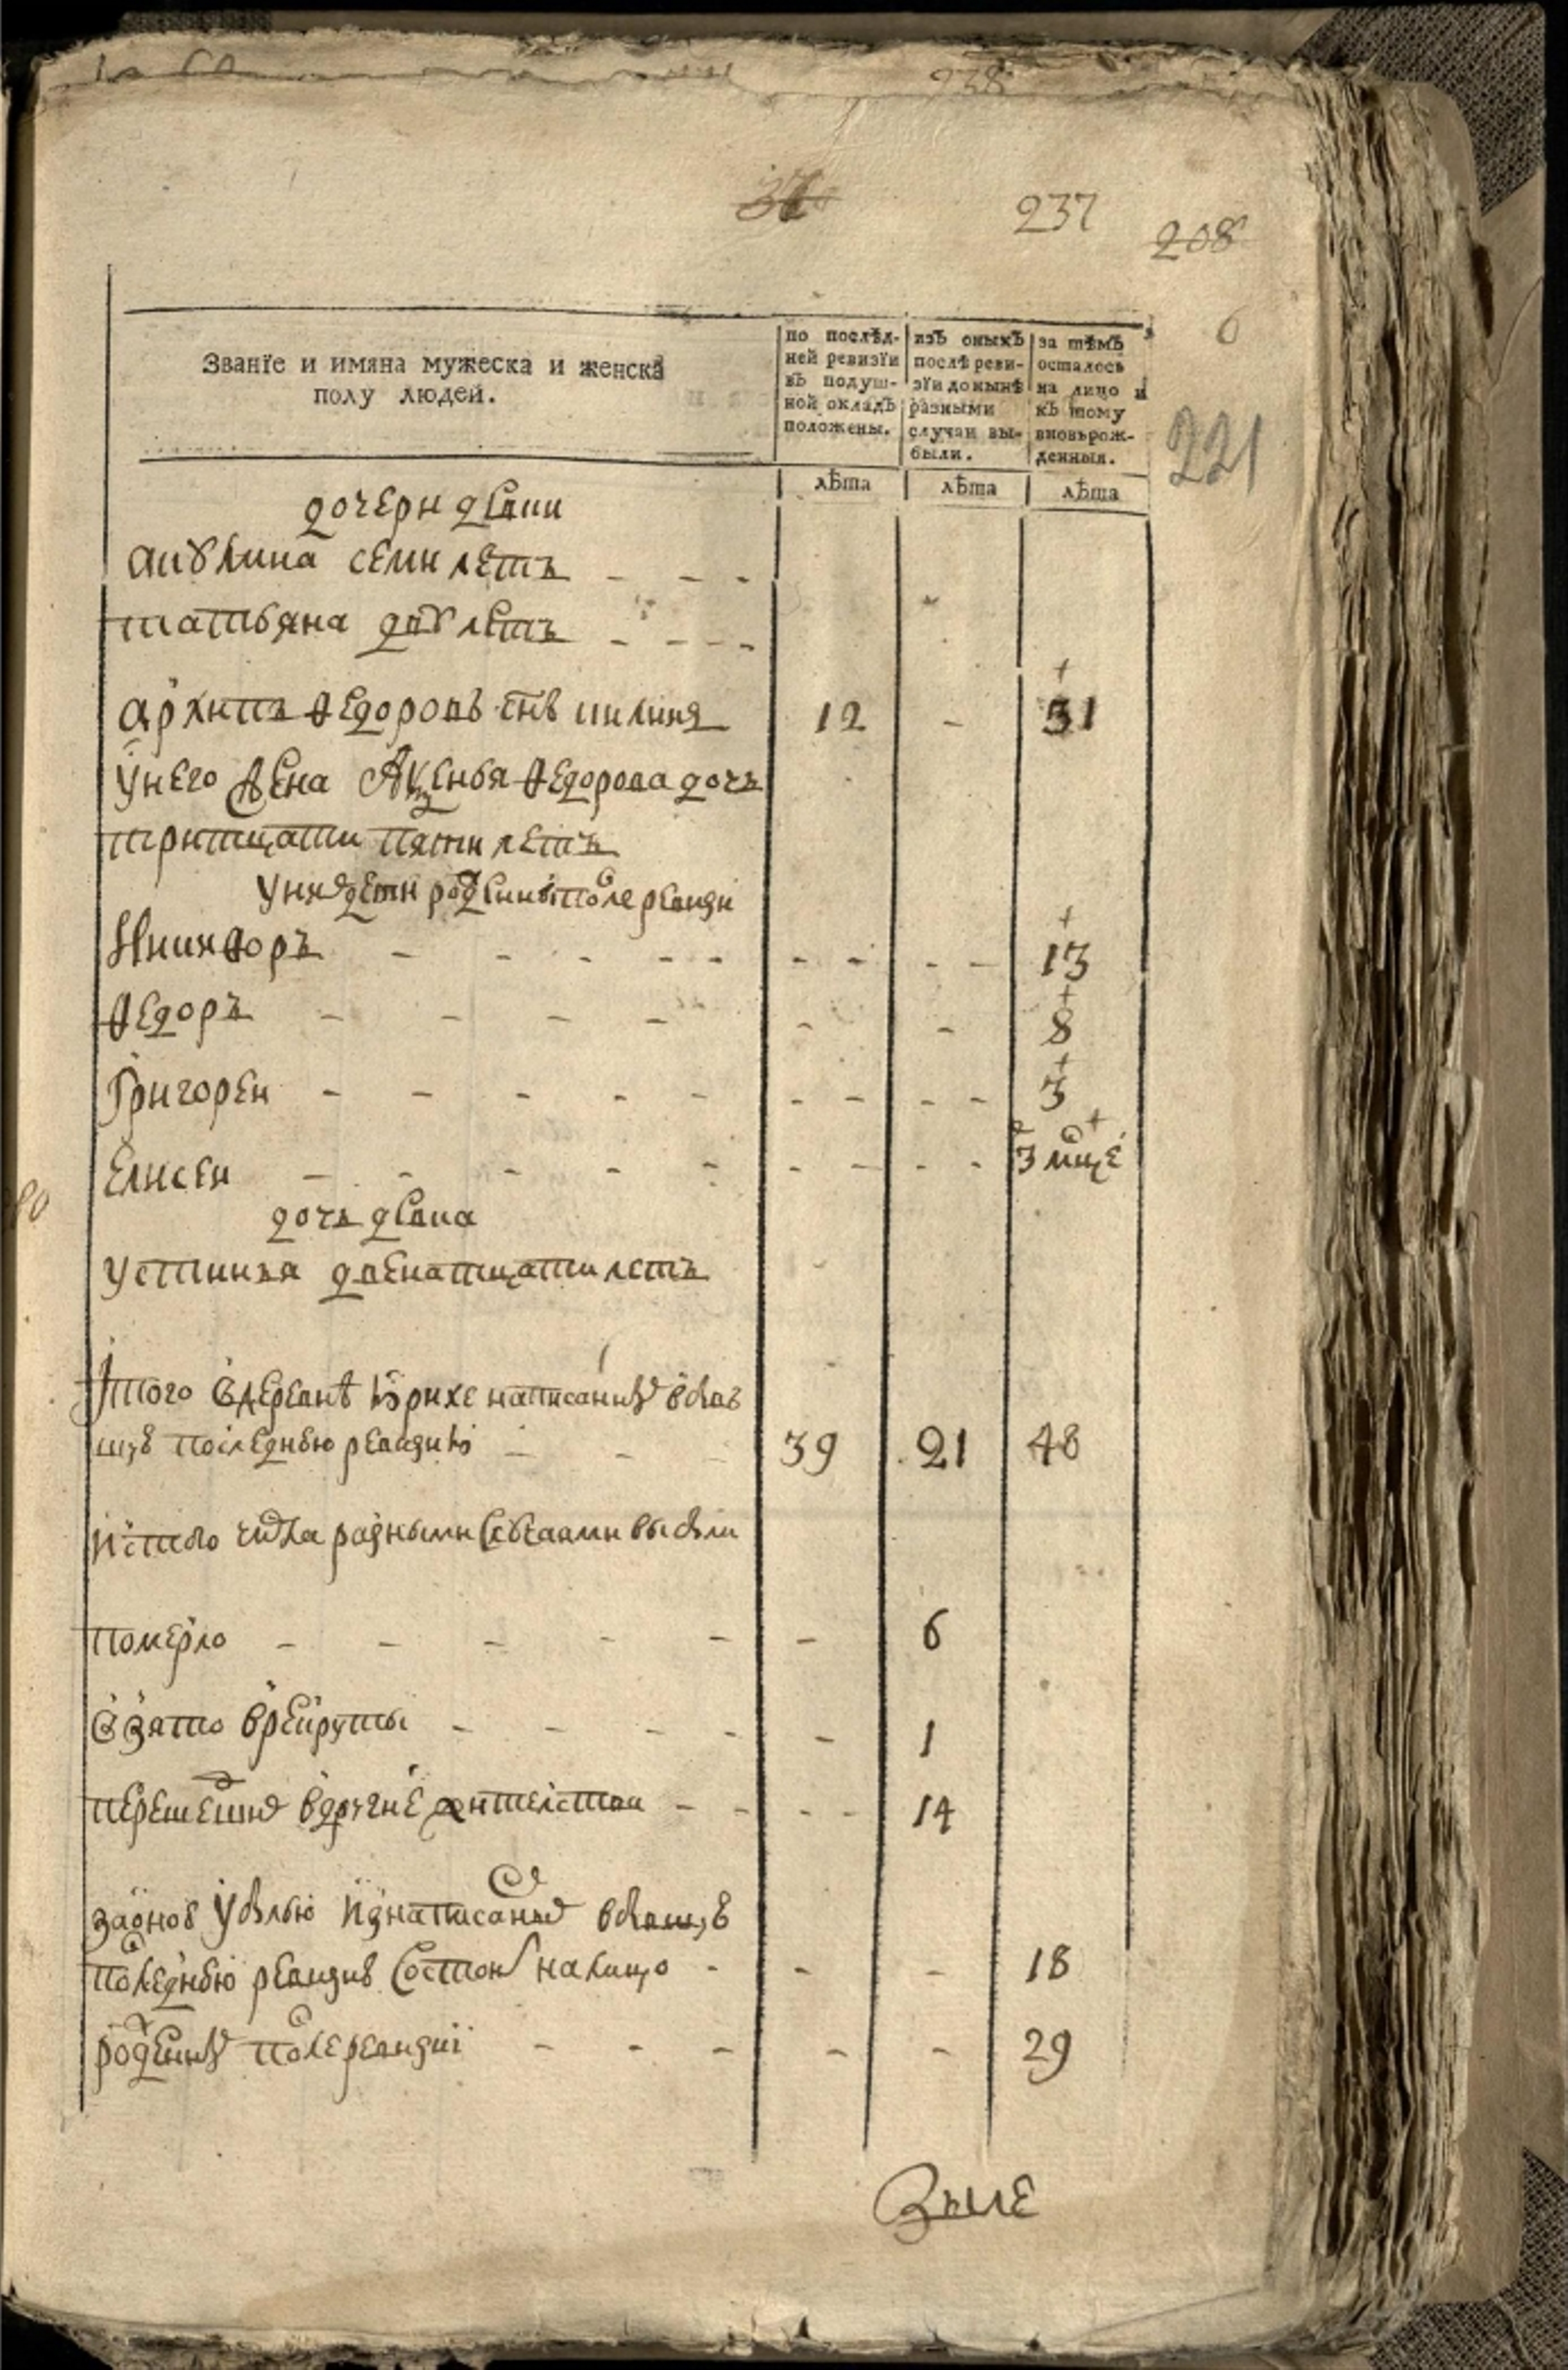 238
37
237
208
6
221
Званїе и имяна мужеска и женска
полу людей.
по послѣд-
ней ревизїи
въ подуш-
ной окладъ
положены.
изъ оныхъ
послѣ реви-
зїи до нынѣ
разными
случаи вы-
были.
за тѣмъ
осталось
на лицо и
къ тому
вновьрож-
денныя.
лѣта лѣта лѣта
дочери девки
акулина семи летъ - - -
татьяна дву летъ - - - -
архипъ Федоровъ снъ никкия 12 - 31
У него жена Аксенья Федорова дочь
тритцати пяти летъ
У них дети рожденные после ревизи
Никифоръ - - - - - - - - - 13
Федоръ - - - - - - 8
Григореи - - - - - - - - - 3
Елисеи - - - - - - - - - 3 мце
дочь девка
Устинья двенатцати летъ
Итого в деревне написаных в бывшую
последнею ревизию - - 39 21 48
Ис того числа разными случаями выбыли
померло - - - - - - 6
Взято в рекруты - - - - - 1
перешедших в другие жителства - - - - 14
за оною убылью из написаных в бывшую
последнею ревизию состоит на лицо - - - 18
рожденных после ревизии - - - - - 29